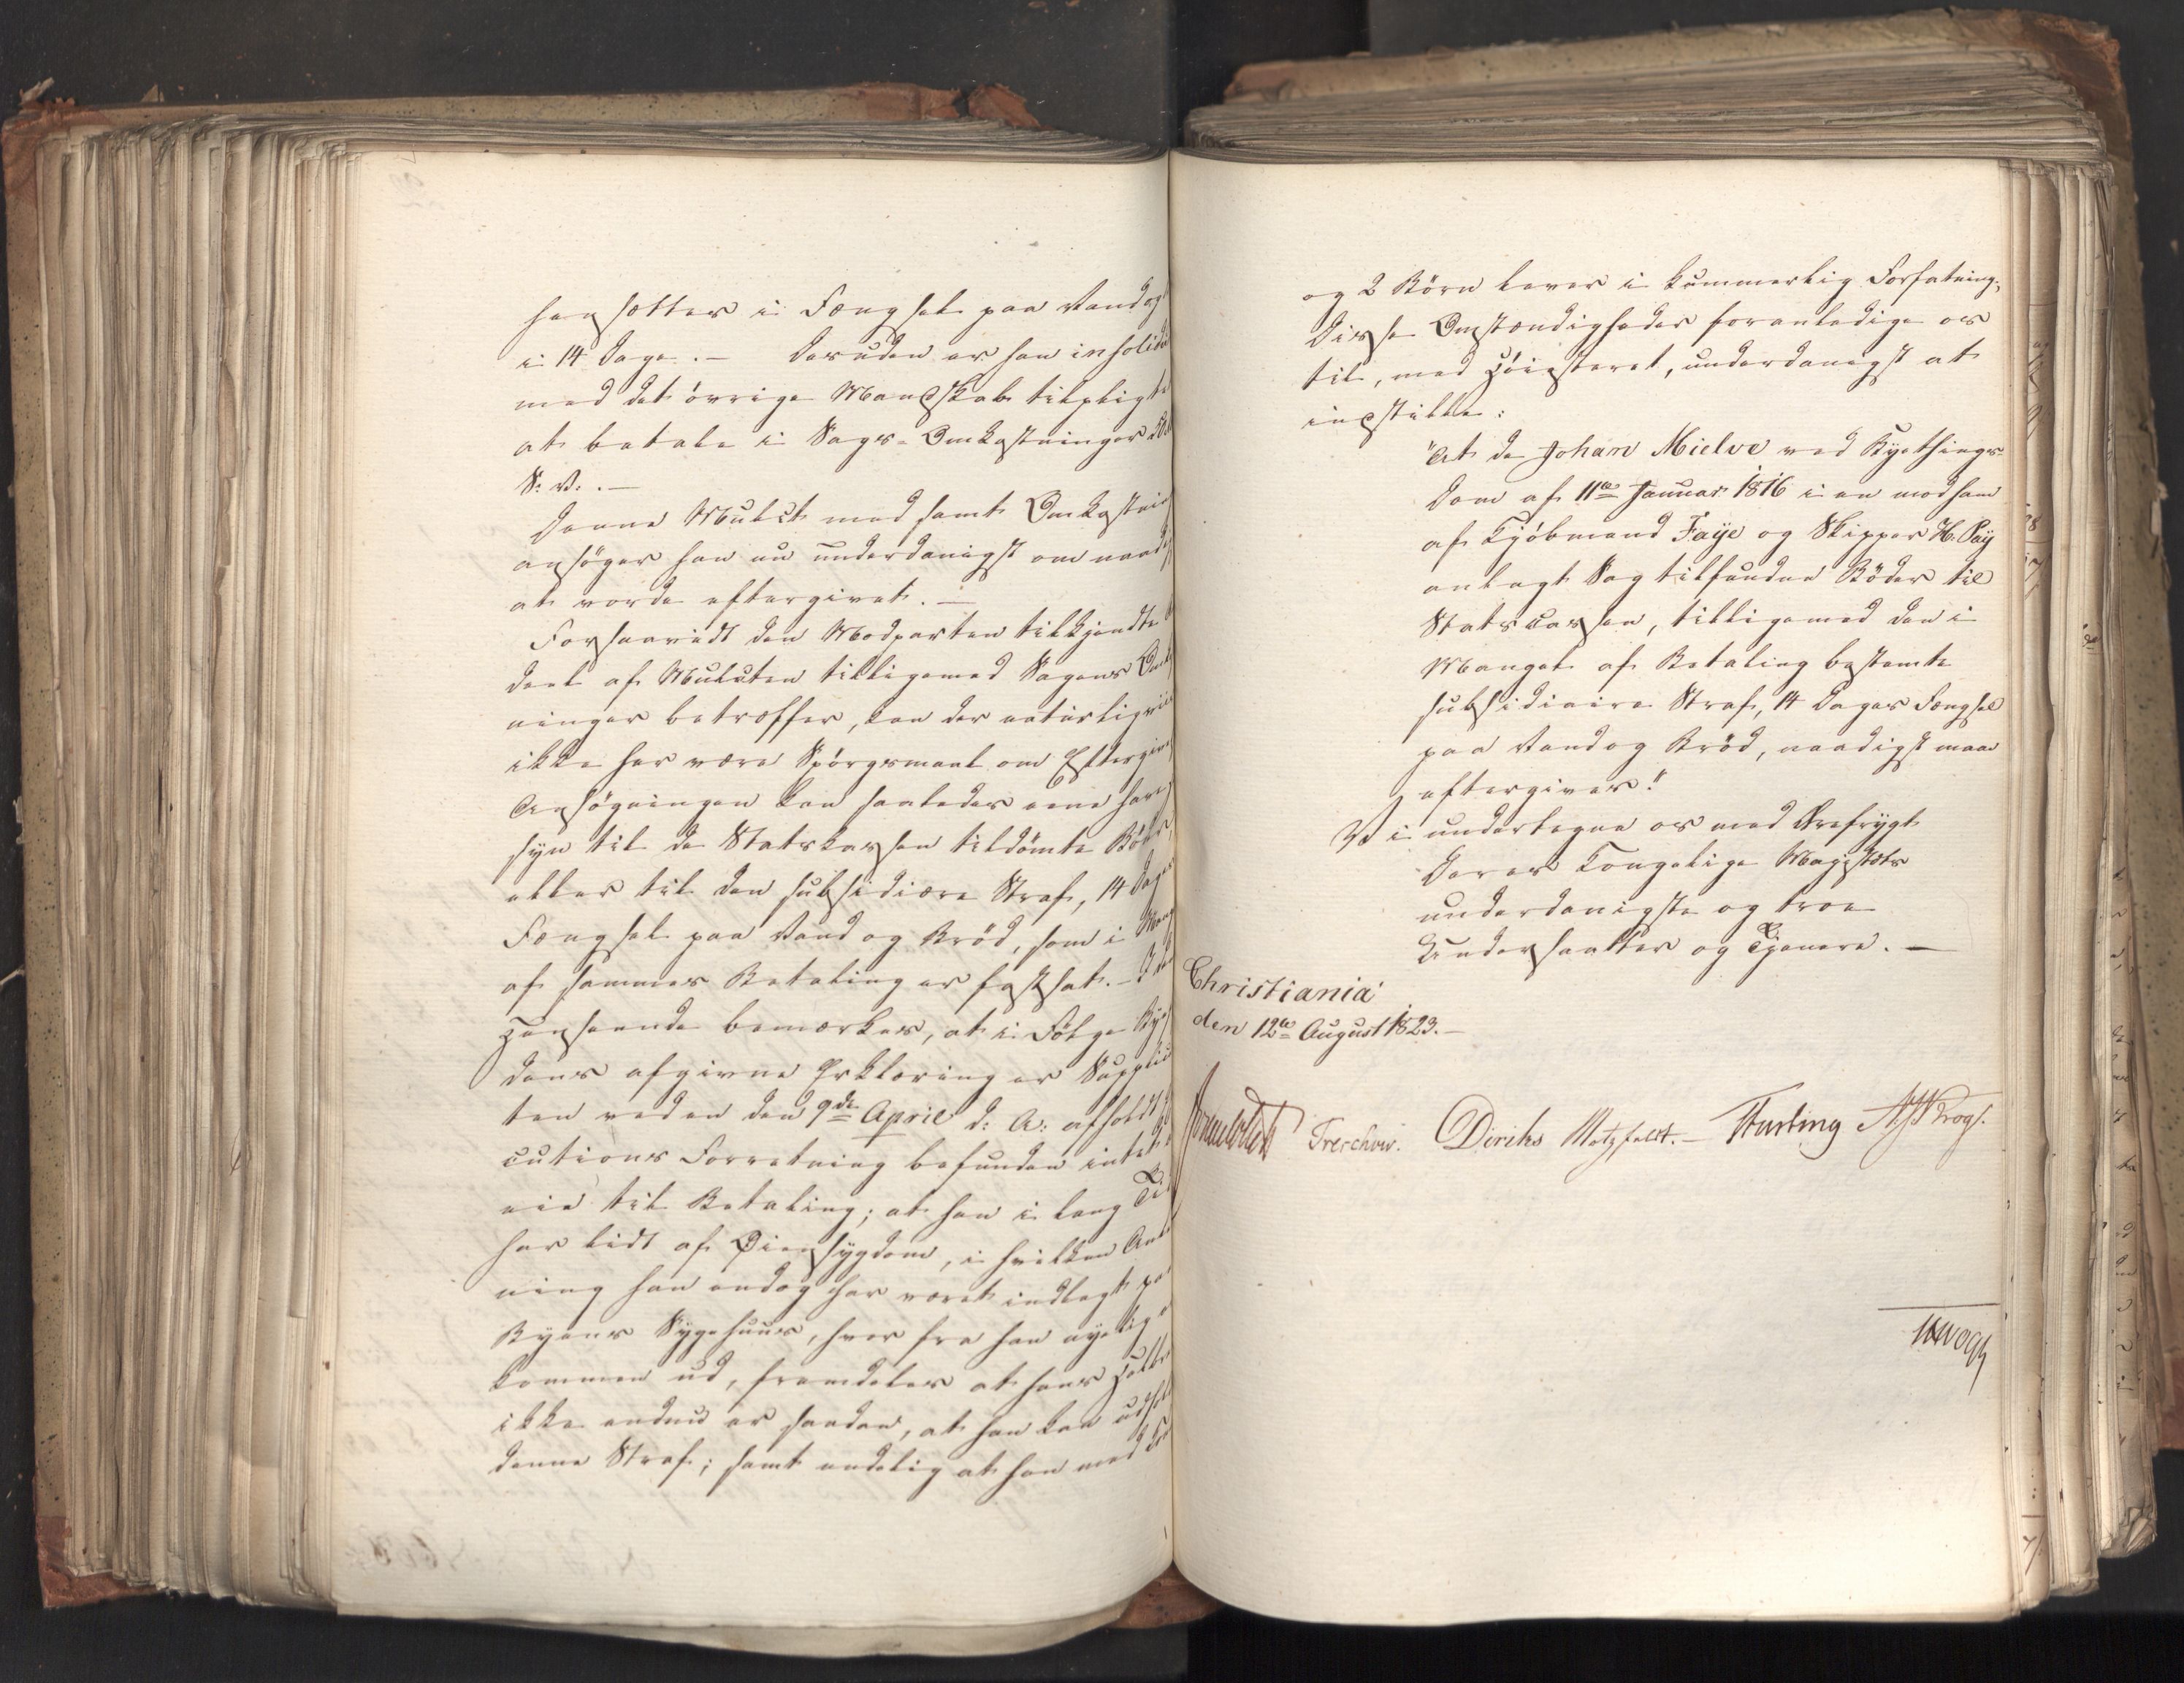 hensættes i Fængsel paa Vand og
i 14 Dage. — Desuden er han insolid
med det övrige Mandskab tilpligt
at betale i Sags-Omkostninger
S: V:. —
Denne Mulct med samt Omkostnin
ansöger han nu underdanigst om naad
at vorde eftergivet. —
Forsaavidt den Modparten tilkjendte
Deel af Mulcten tilligemed Sagens Omk
ninger betræffer, kan der naturligvii
ikke her være Spörgsmaal om Eftergive
Ansögningen kan saaledes ene have
syn til de Statskassen tildömte Böder
eller til den subsidiære Straf, 14 Dage
Fængsel paa Vand og Bröd, som i Mang
af sammes Betaling er fastsat. —
Henseende bemærkes, at i Fölge Bye
dens afgivne Erklæring er Supplic
ten ved en den 9de April d: A: afholdt
cutions Forretning befunden intet
eie til Betaling; at han i lang Tid
har lidt af Øiensygdom, i hvilken Anl
ning han endog har været indlagt paa
Byens Sygehuus, hvor fra han nyelig
kommen ud, fremdeles at hans Helb
ikke endnu er saadan, at han kan udhol
denne Straf; samt endelig at han med
og 2 Börn lever i kummerlig Forfatning;
Disse Omstændigheder foranledige os
til, med Höiesteret, underdanigst at
indstille:
"At de Johan Mielve ved Byethings-
dom af 11te Januar 1816 i en mod ham
af Kjöbmand Faye og Skipper H. Pay
anlagt Sag tilfundne Böder til
Statscassen, tilligemed den i
Mangel af Betaling bestemte
subsidiaire Straf, 14 Dages Fængsel
paa Vand og Bröd, naadigst maae
eftergives."
Vi undertegne os med Ærefrygt
Deres Kongelige Majestæts
underdanigste og troe
Undersaatter og Tjenere. —
Christiania
den 12te August 1823. —
Sommerhielm Treschow. Diriks Motzfeldt. — Fasting Krogh.